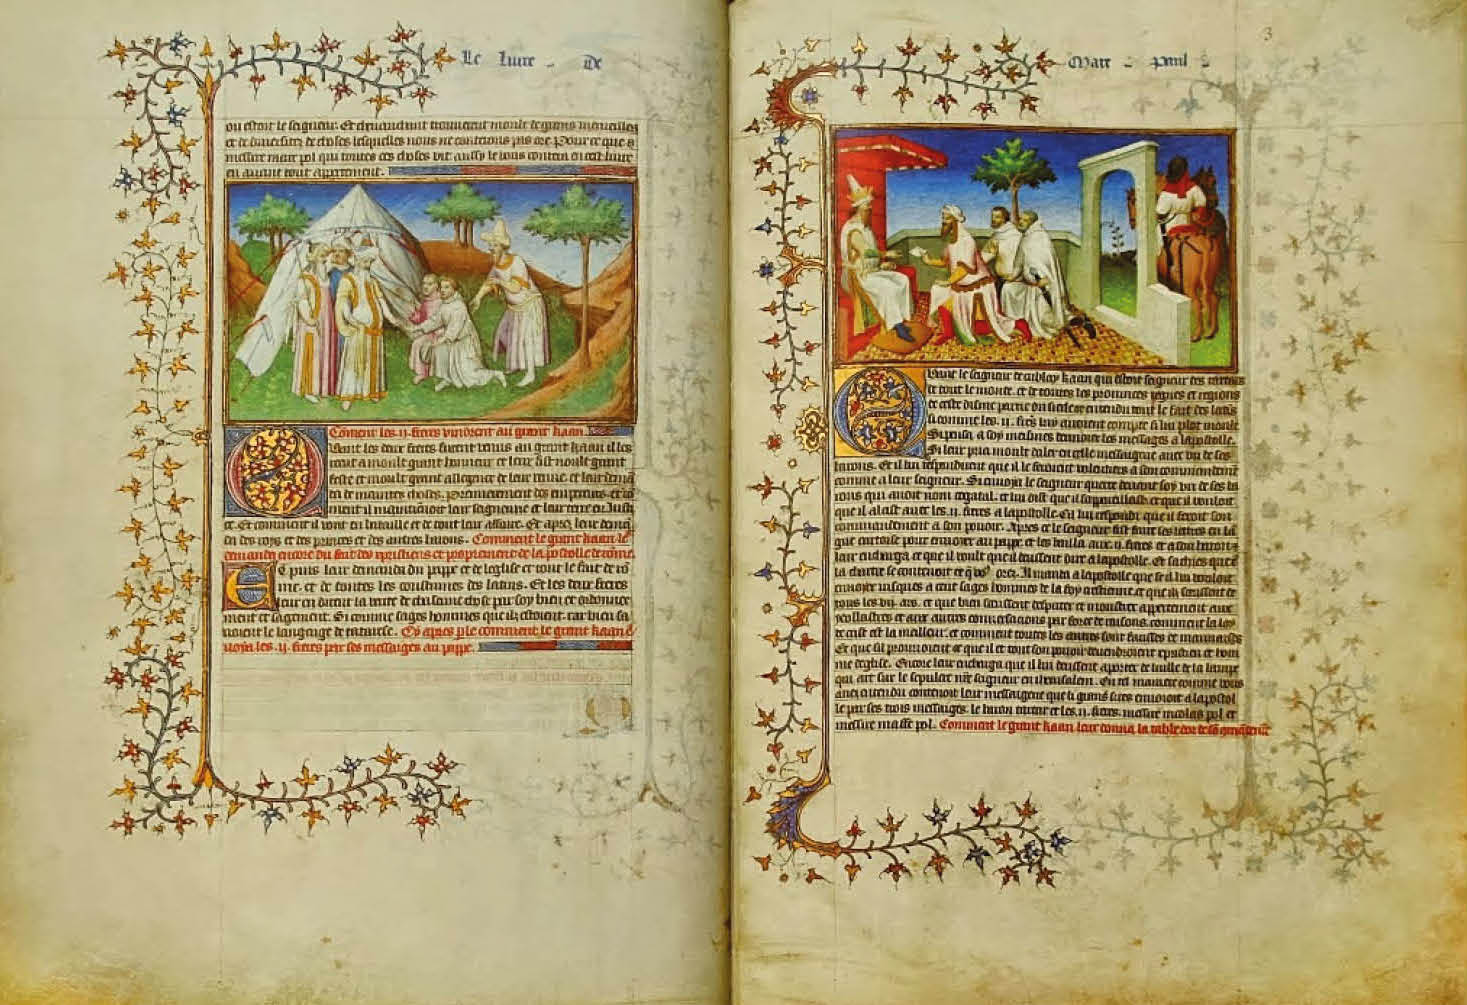 Le liure de
ou estoit le seigneur. Et quant vindrent trouuerent moult de grans merueilles
et de diuersitez de choses lesquelles nous ne conterons pas ore. Pour ce que
messire marc pol qui toutes ces choses vit aussy le vous contera en cest liure
en auant tout apertement.
Coment les .ij. freres vindrent au grant kaan
Quant les deux freres furent venus au grant kaan il les
recut a moult grant honneur et leur fist moult grant
feste et moult grant allegrece de leur venue. et leur demā
da de maintes choses. Premierement des empereurs. et cō
ment il maintienoit leur seigneurie et leur terre en Justi
ce. Et comment il vont en bataille et de tout leur affaire. Et apres leur demā
da des roys et des princes et des autres barons. Comment le grant kaan le
demanda encore du fait des crestiens et proprement de la postolle de rōme.
Et puis leur demanda du pappe et de leglise et tout le fait de rō
me. et de toutes les coustumes des latins. Et les deux freres
leur en dirent la verite de chascune chose par soy bien et ordonnee
ment et sagement. Si comme sages hommes que ilz estoient. car bien sa
uoient le langaige de tatarse. Cy apres ple comment le grant kaan ē
uoya les .ij. freres par ses messaiges au pappe.
Marc Paul
3
Quant le seigneur de cublay kaan qui estoit seigneur des tartars
de tout le monde. et de toutes les prouinces regnes et regions
de ceste disme partie du siecle ot entendu tout le fait des latis
si comme les .ij. freres luy auoient compte si lui plot moult
Si pensa a soy meismes denuoier les messages a lapostolle.
Si leur pria moult daler en celle messaigne auec vn de ses
barons. Et il lui respondirent que il le feroient volentiers a son commendemēt
comme a leur seigneur. Si enuoya le seigneur querre deuant soy vn de ses ba
rons qui auoit nom cogatal. et lui dist que il sappareillast et que il vouloit
que il alast auec les .ij. freres a lapostolle. Cil lui respondi que il feroit son
commandement a son pouoir. Apres ce le seigneur fist faire ses lettres en lā
gue tartoise pour enuoyer au pappe. et les bailla aux .ij. freres et a son baron
leur encharga ce que il voult que il deussent dire a lapostolle. Et sachies que ē
la chartre se contenoit ce q̄ vo9 orez. Il manda a lapostolle que se il lui vouloit
enuoyer iusques a cent sages hommes de la foy crestienne. et que ilz seussent de
tous les .vij. ars. et que bien sceussent desputer et monstrer appertement aux
ydollastres et aux autres conuersations par force de raisons. comment la loy
de crist est la meilleur. et comment toutes les autres sont fausses et mauuaises
Et que sil prouuoient ce que il et tout son pouoir deuendroient crestien et hom
me deglise. Encore leur encharga que il lui deussent aporter de luille de la lampe
qui art sur le sepulcre nr̄e seigneur en iherusalem. En tel maniere comme vous
auez entendu contenoit leur messaigerie que li grans sires enuoioit a lapostol
le par ses trois messaiges. le baron tartar et les .ij. freres. messire nicolas pol et
messire maffe pol. Comment le grant kaan leur donna la table dor de sō